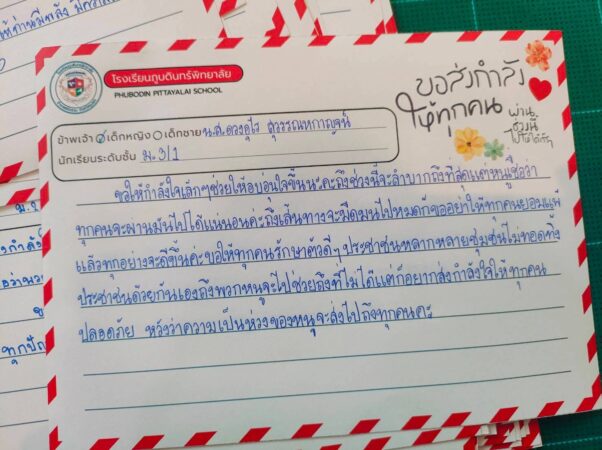 โรงเรียนภูบดินทร์พิทยาลัย
PHUBODIN PITTAYALAI SCHOOL
ขอส่งกำลัง
ให้ทุกคน
ผ่าน
ช่วงนี้
ไปให้ได้
ข้าพเจ้า เด็กหญิง เด็กชาย น.ส.ดวงอุไร สุวรรณหกาญจน์
นักเรียนระดับชั้น ม.3/1
ขอให้กำลังใจเล็กๆช่วยให้อบอุ่นใจขึ้นนะคะถึงช่วงนี้จะลำบากถึงที่สุดแต่หนูเชื่อว่า
ทุกคนจะผ่านมันไปได้แน่นอนค่ะถึงเส้นทางจะมืดมนไปหมดก็ขออย่าให้ทุกคนยอมแพ้
แล้วทุกอย่างจะดีขึ้นค่ะขอให้ทุกคนรักษาตัวดีๆประชาชนหลากหลายชุมชนไม่ทอดทิ้ง
ประชาชนด้วยกันเองถึงพวกหนูจะไปช่วยถึงที่ไม่ได้แต่ก็อยากส่งกำลังใจให้ทุกคน
ปลอดภัย หวังว่าความเป็นห่วงของหนูจะส่งไปถึงทุกคนคะ